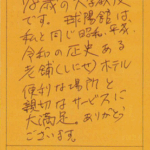 です。球陽館は、
私と同じ昭和、平成、
令和の歴史ある
老舗(しにせ)ホテル
便利な場所と
親切なサービスに
大満足。ありがとう
ございます。